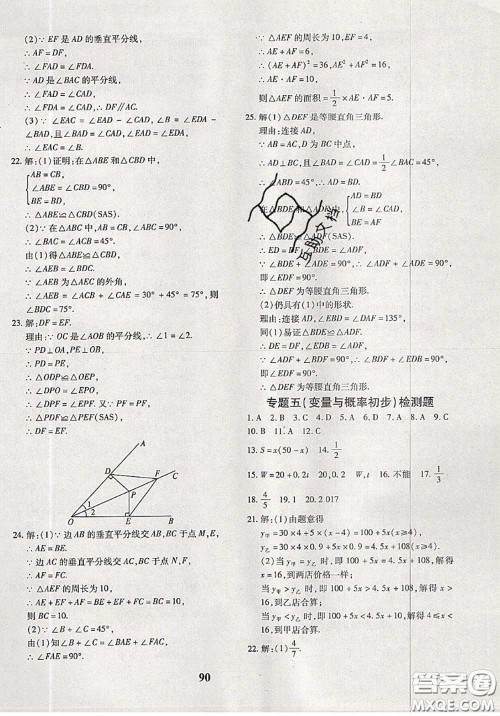 (2)∵EF 是 AD 的垂直平分线,
∴AF=DF,
∴∠FAD=∠FDA.
∵AD 是∠BAC 的平分线,
∴∠FAD=∠CAD,
∴∠FDA=∠CAD,∴DF∥AC.
(3)∵∠EAC=∠EAD-∠CAD,∠B=∠EDA-
∠BAD,且∠BAD=∠CAD,∠EAD=∠EDA,
∴∠EAC=∠B.
22.解:(1)证明:在△ABE 和△CBD 中,
AB=CB,
∠ABE=∠CBD=90°,
BE=BD,
∴△ABE≌△CBD(SAS).
(2)∵在△ABC 中,AB=CB,∠ABC=90°,
∴∠BAC=∠ACB=45°.
由(1)得△ABE≌△CBD,
∴∠AEB=∠BDC.
∵∠AEB 为△AEC 的外角,
∴∠AEB=∠ACB+∠CAE=30°+45°=75°,则
∠BDC=75°.
23.解:DF=EF.
理由:∵OC 是∠AOB 的平分线,∴∠1=∠2.
∵PD⊥OA,PE⊥OB,
∴∠PDO=∠PEO=90°.
∴△ODP≌△OEP,
∴OD=OE,
∴△ODF≌△OEF,
∴DF=EF.
A
D
F
C
P
1
2
O
E
B
24.解:(1)∵边 AB 的垂直平分线交 AB,BC 于点 M,E,
∴AE=BE.
∵边 AC 的垂直平分线交 AC,BC 于点 N,F,
∴AF=CF.
∵△AEF 的周长为 10,
∴AE+EF+AF=10.
∴BE+EF+FC=BC=10.
(2)∵∠B+∠C=45°,
由(1)知∠B+∠C=∠BAE+∠CAF=45°,
∴∠FAE=90°.
∵△AEF 的周长为 10,EF=4,
∴AE+AF=6,
∴(AE+AF)²=36,AE²+AF²=16,
∴AE·AF=10,
则△AEF 的面积=1/2×AE·AF=5.
25.解:(1)△DEF 是等腰直角三角形.
理由:连接 AD,
∵AB=AC,D 为 BC 中点,
∴AD⊥BC,且∠BAD=∠CAD=1/2∠BAC=45°,
∴∠ABD=45°=
AD=BD
AF=BE,
∴△BDE≌△ADF(SAS).
∴∠ADE+∠ADF=90°.
即∠EDF=90°,
∴△DEF 为等腰直角三角形.
(2)仍具有(1)中的形状.
理由:连接 AD,∠EBD=∠DAF=135°,
同(1)易证△BDE≌△ADF.
∴DE=DF,∠EDB=∠ADF,
∴∠ADF+∠FDB=∠EDB+∠FDB=90°,
即∠EDF=90°.
∴△DEF 为等腰直角三角形.
专题五(变量与概率初步)检测题
1.A 2.B 3.C 4.A 5.C 6.D 7.C 8.D 9.C
10.B 11.A 12.C
13.S=x(50-x) 14.1/2
15.W=20+0.2t 20 W 16.不能 17.1/3
18.4/5 19.1 20.2 017
21.解:(1)由题意得
y甲=30×4+5×(x-4)=100+5x(x≥4),
y乙=30×4×0.9+5x×0.9=4.5x+108(x≥4).
(2)当 y甲=y乙 时,即 100+5x=4.5x+108,解得 x=
16,到两店价格一样;
当 y甲>y乙 时,即 100+5x>4.5x+108,解得 x>
16,到乙店合算;
当 y甲<y乙 时,即 100+5x<4.5x+108,解得 4≤x<
16,到甲店合算.
22.解:(1)4/7.
90
互助文档
答案圈
MXQE.COM